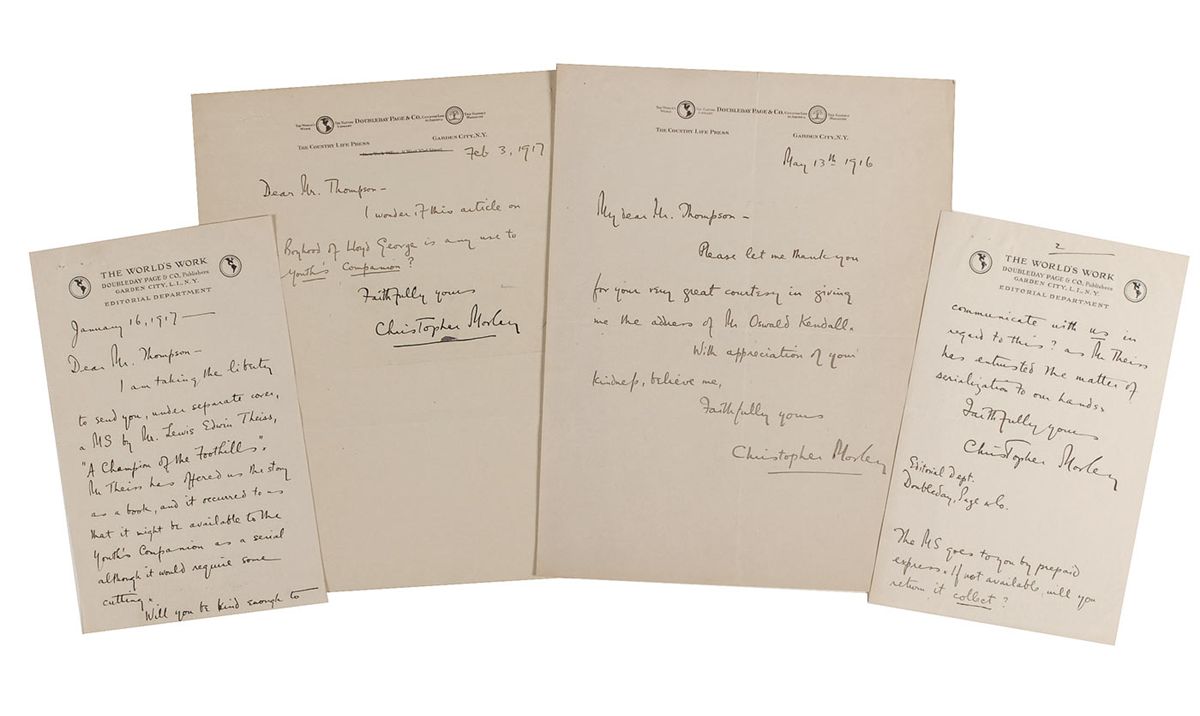 THE WORLD'S WORK
DOUBLEDAY PAGE & CO. Publishers
GARDEN CITY, L.I., N.Y.
EDITORIAL DEPARTMENT
January 16, 1917 —
Dear Mr. Thompson —
I am taking the liberty
to send you, under separate cover,
a MS by Mr. Lewis Edwin Theiss,
"A Champion of the Foothills".
Mr Theiss has offered us the story
as a book, and it occurred to us
that it might be available to the
Youth's Companion as a serial
although it would require some
cutting.
Will you be kind enough to
DOUBLEDAY PAGE & CO.
THE COUNTRY LIFE PRESS
GARDEN CITY, N.Y.
Feb 3, 1917
Dear Mr. Thompson —
I wonder if this article on
Boyhood of Lloyd George is any use to
Youth's Companion?
Faithfully yours
Christopher Morley
DOUBLEDAY PAGE & CO.
THE COUNTRY LIFE PRESS
GARDEN CITY, N.Y.
May 13th 1916
My dear Mr. Thompson —
Please let me thank you
for your very great courtesy in giving
me the adress of Mr Oswald Kendall.
With appreciation of your
kindness, believe me,
Faithfully yours
Christopher Morley
2
THE WORLD'S WORK
DOUBLEDAY PAGE & CO. Publishers
GARDEN CITY, L.I., N.Y.
EDITORIAL DEPARTMENT
communicate with us in
regard to this? as Mr Theiss
has entrusted the matter of
serialization to our hands.
Faithfully yours
Christopher Morley
Editorial Dept.
Doubleday, Page & Co.
The MS goes to you by prepaid
express. If not available, will you
return it collect?